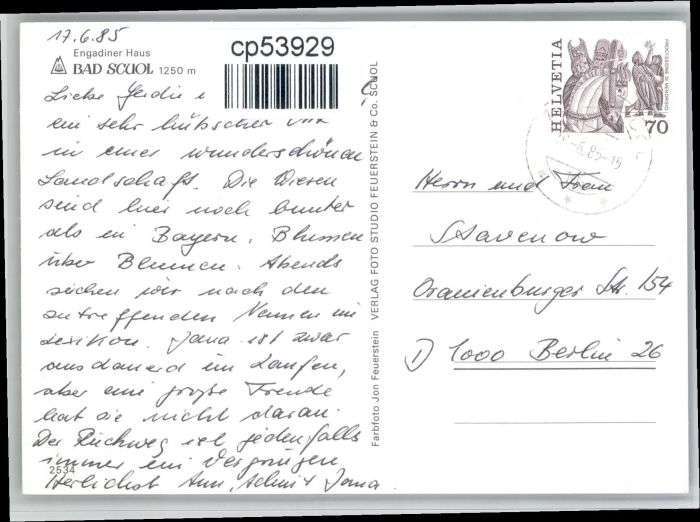 17.6.85
Engadiner Haus
BAD SCUOL 1250 m
cp53929
Liebe
ein sehr hübscher
in einer wunderschönen
Landschaft. Die Wiesen
sind hier noch bunter
als in Bayern. Blumen
über Blumen. Abends
suchen wir nach den
zutreffenden Namen im
Lexikon. Jana ist zwar
ausdauernd im Laufen,
aber eine große Freude
hat sie nicht daran.
Der Rückweg ist jedenfalls
immer ein Vergnügen
2534
Herzlichst Jana
Farbfoto Jon Feuerstein VERLAG FOTO STUDIO FEUERSTEIN & Co. SCUOL
HELVETIA
70
Herrn und Frau
Stavenow
Oranienburger Str. 154
D 1000 Berlin 26